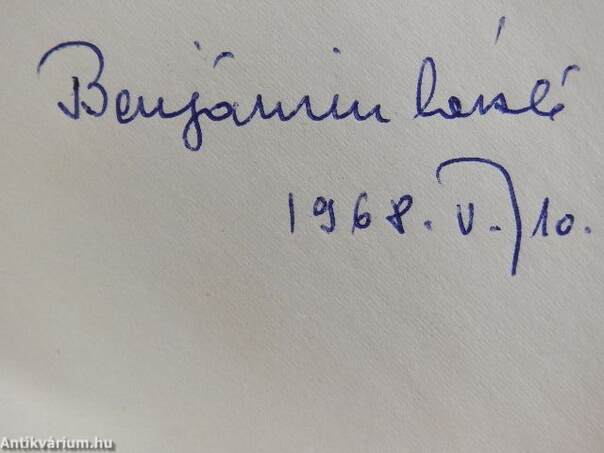 Benjámin László
1968. V. 10.
Antikvárium.hu